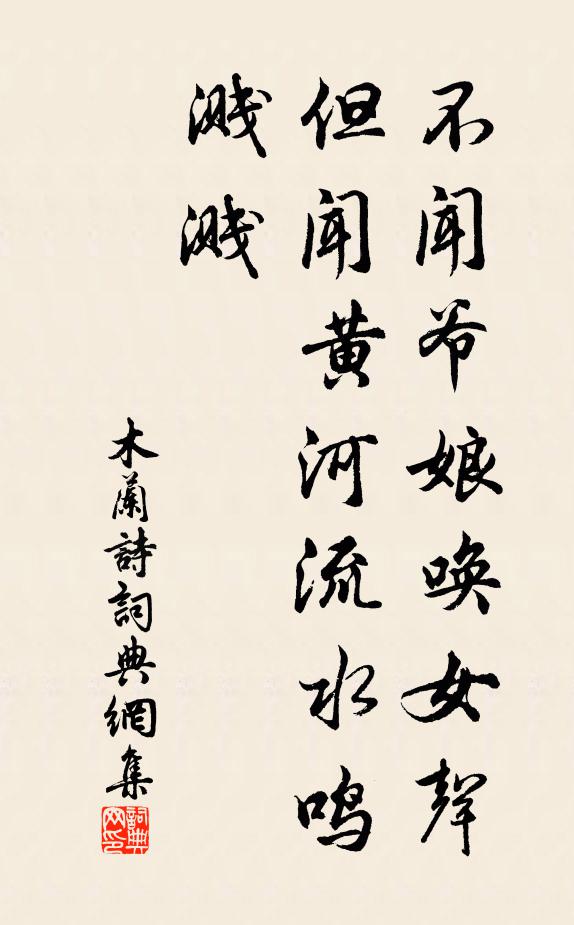 不闻爷娘唤女聲
但闻黄河流水鸣
溅溅
木蘭詩詞典網集
詞典网印